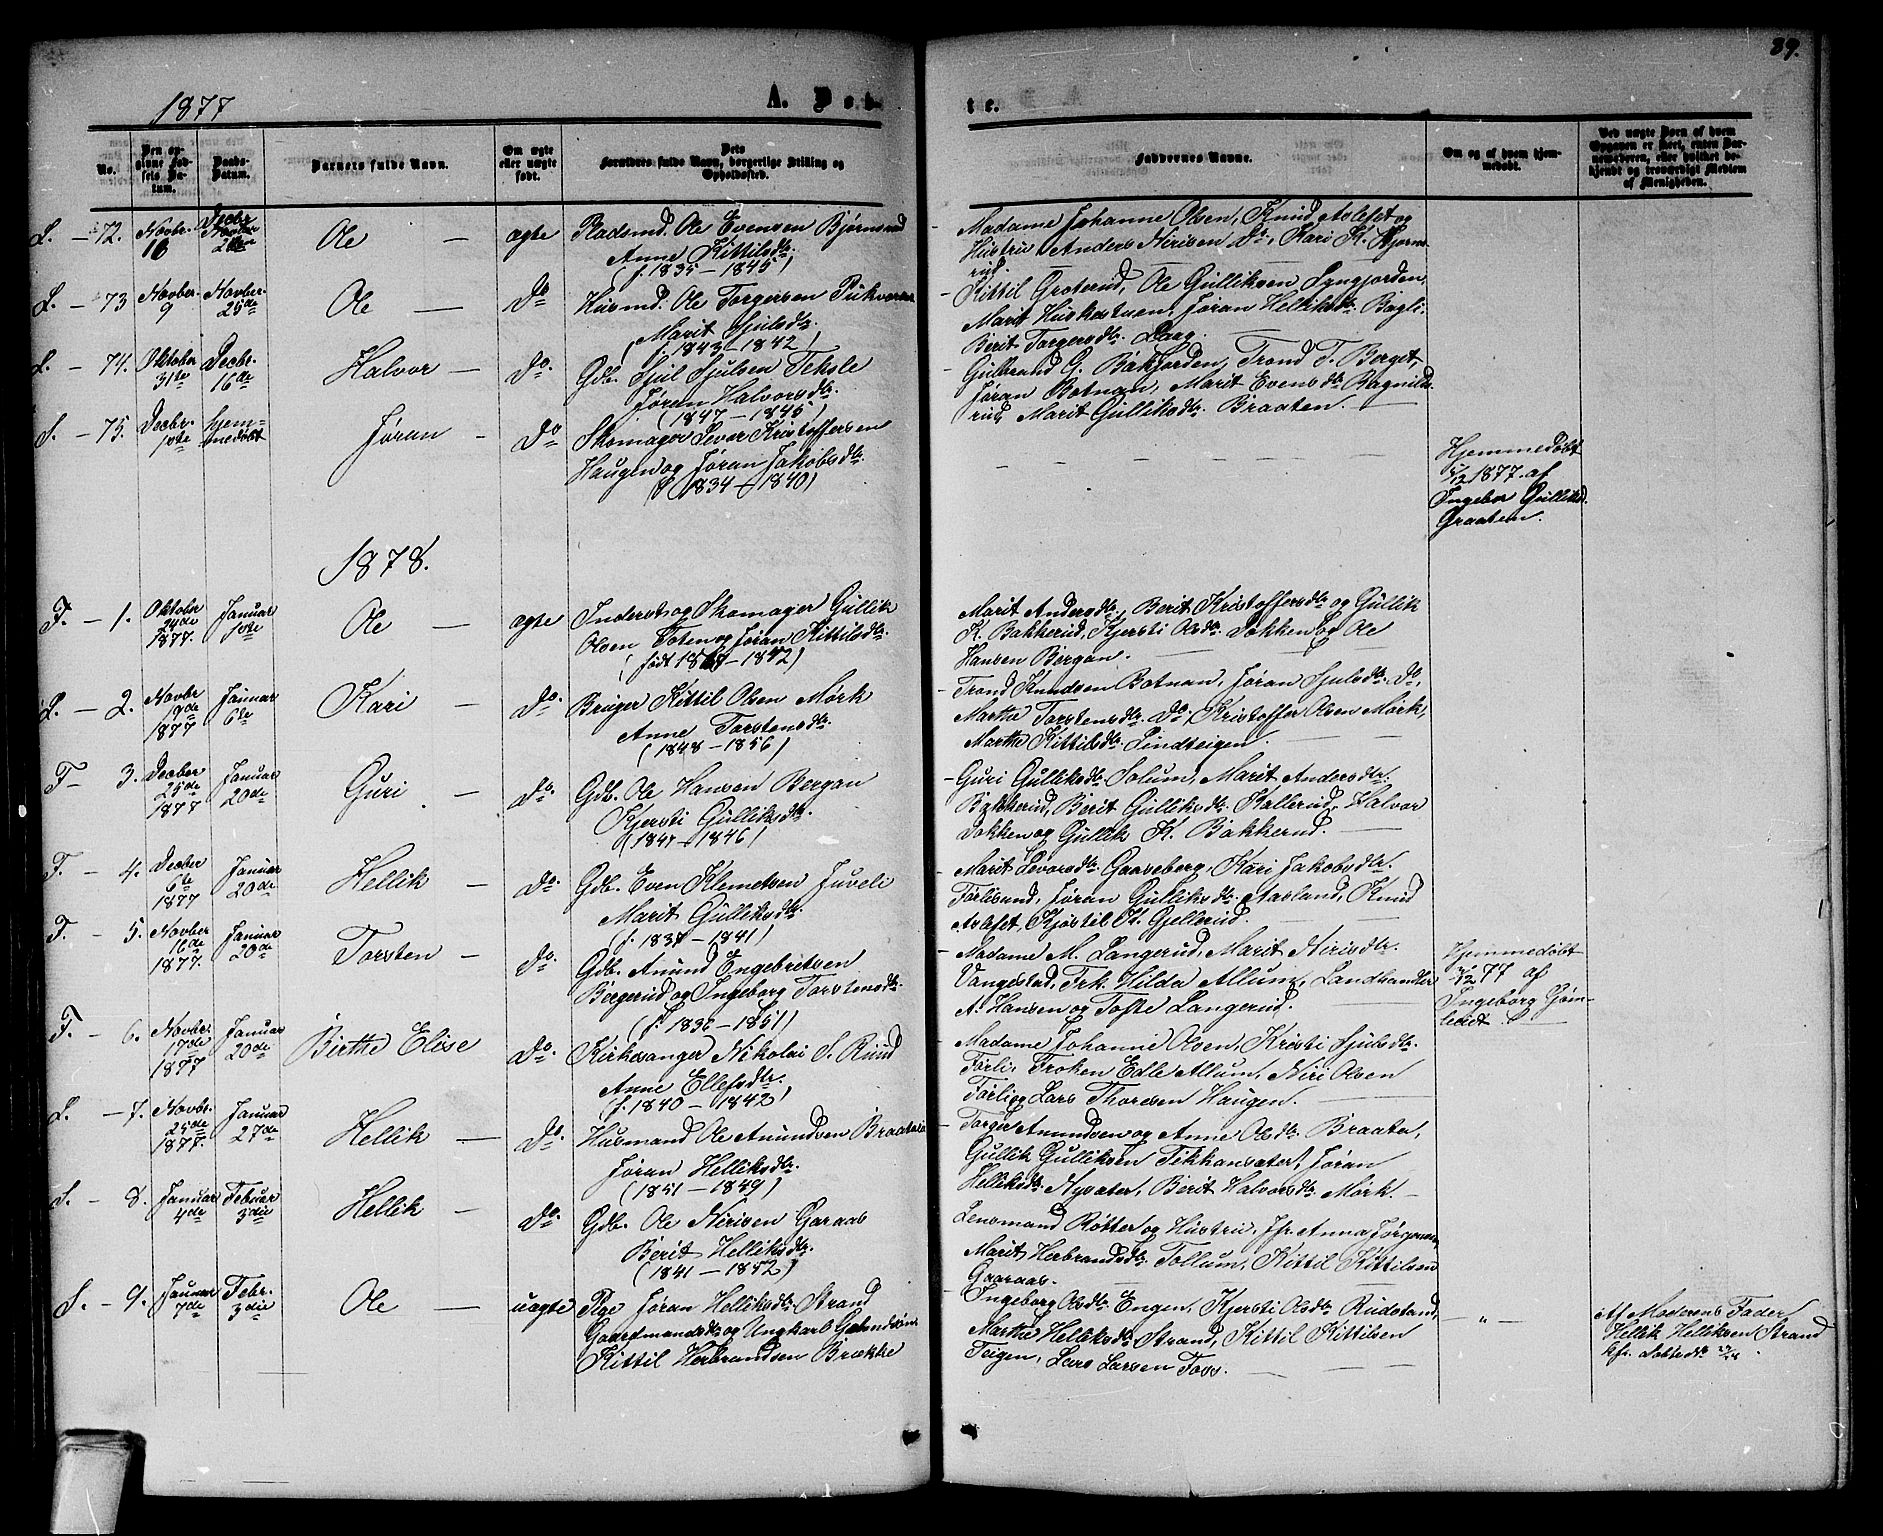 89.
1877
A. Døb-
te.
No.
Den angivne Fødsels Datum.
Daabs-Datum.
Barnets fulde Navn.
Om ægte eller uægte født.
Dets Forældres fulde Navn, borgerlige Stilling og Opholdssted.
Faddernes Navne.
Om og af hvem hjemmedøbt.
Ved uægte Børn af hvem Opgaven er skeet, enten Barnemoderen, eller hvilket bekjendt og troværdigt Medlem af Menigheden.
L. - 72.
Novbr. 16
Decbr 26
Ole
ægte
Pladsmd. Ole Evensen Bjørnerud
Anne Kittilsdtr.
(f. 1835 - 1845)
Madame Johanne Olsen, Knud Aslefet og
Hustru, Anders Nirisen Do, Kari K. Bjørne-
rud.
L. - 73
Novber 9
Novber. 25de
Ole
Do
Husmd. Ole Torgersen
Marit Sjulsdtr.
(f. 1843 - 1842)
Kittil Groterud, Ole Gulliksen Lyngjorden,
Marit Huskestuen, Jøran Helliksdtr. Bagli
Berit Torgersdtr. Laag.
L. - 74.
Oktober 31te
Decbr. 16de
Halvor
Do.
Gdb. Sjul Sjulsen Teksle
Jøran Halvorsdtr.
(1847 - 1845)
Gulbrand G. Bakjorden, Trond T. Berget,
Jøran Botnan, Marit Evensdtr. Bagnilds-
rud, Marit Gulliksdtr. Braaten.
S. - 75.
Decbr. 1ste
hjem-
medøbt
Jøran
Do
Skomager Levor Kristoffersen
Haugen og Jøran Jakobsdtr.
(f. 1834 - 1840)
Hjemmedøbt
/12 1877. af
Ingebor Gulliksd.
Graaten.
1878.
F. - 1.
Oktober 24de 1877.
Januar 1ste
Ole
ægte
Inderst og Skomager Gullik
Olsen Toten og Jøran Kittilsdtr.
Marit Andersdtr., Berit Kristoffersdtr og Gullik
K. Bakkerud, Kjersti Olsdtr. Dokken og Ole
Hansen Bergan.
L. - 2.
Novbr 19de 1877
Januar 6te
Kari
Do.
Bruger Kittil Olsen Mørk
Anne Torstensdtr.
(1848 - 1856)
Trond Knudsen Botnan, Jøran Sjulsdtr. Do,
Marthe Torstensdtr. Do, Kristoffer Olsen Mørk,
Marthe Kittilsdtr. Lindteigen.
F - 3.
Decber 25de 1877
Januar 20de
Guri
Do.
Gdb. Ole Hansen Bergan
Kjersti Gulliksdtr.
(1847 - 1846)
Guri Gulliksdtr. Solum, Marit Andersdtr.
Bakkerud, Berit Gulliksdtr. Kallerud, Halvor
Dokken og Gullik K. Bakkerud.
F. - 4.
Decber 6te 1877
Januar 20de
Hellik
Do.
Gdb. Even Klemetsen Juveli
Marit Gulliksdtr.
(f. 1837 - 1841)
Marit Levorsdtr. Gaaseberg, Kari Jakobsdtr.
Førlisund, Jøran Gulliksdtr. Aasland, Knud
Aslefet, Kjøstil K. Gjellerud.
F. - 5.
Novber 16de 1877.
Januar 20de
Torsten
Do.
Gdb. Anund Engebretsen
Bergerud og Ingeborg Torstensdtr.
(f. 1832 - 1851)
Madame M. Langerud, Marit Nirisdtr.
Vangestad, Frk. Hilda Allum, Landhandler
A. Hansen og Tofte Langerud.
Hjemmedøbt
/12 77 af
Ingeborg Gjem-
ledet
F. - 6.
Novbr. 17de 1877
Januar 20de
Birthe Elise
Do.
Kirkesanger Nikolai S. Ruud
Anne Ellefsdtr.
(f. 1840 - 1842)
Madame Johanne Olsen, Kristi Sjulsdtr.
Førli, Frøken Edle Allum, Niri Olsen
Førli og Lars Thoresen Haugen.
L. - 7.
Novbr. 25de 1877.
Januar 27de
Hellik
Do.
Husmand Ole Anundsen Braaten
Jøran Helliksdtr.
(1851 - 1849)
Torger Anundsen og Anne Olsdtr. Braata,
Gullik Gulliksen Tikkansæter, Jøran
Helliksdtr. Nysæter, Berit Halvorsdtr. Mørk.
S. - 8.
Januar 4de
Februar 3die
Hellik
Do.
Gdb. Ole Nirisen Garaas
Berit Helliksdtr.
(1841 - 1852)
Lensmand Røtter og Hustru, Jfr. Anna Jørgensen,
Marit Herbrandsdtr. Tollum, Kittil Kittilsen
Gaaraas.
S. - 9.
Januar 7de
Febr. 3die
Ole
uægte
Pige Jøran Helliksdtr. Strand
Gaardmandsdtr. og Ungkarl
Kittil Herbrandsen Brække
Ingeborg Olsdtr. Engen, Kjersti Olsdtr. Rudstand,
Marthe Helliksdtr. Strand, Kittil Kittilsen
Teigen, Lars Larsen Foss.
- " -
Af Moderens Fader
Hellik Helliksen Strand